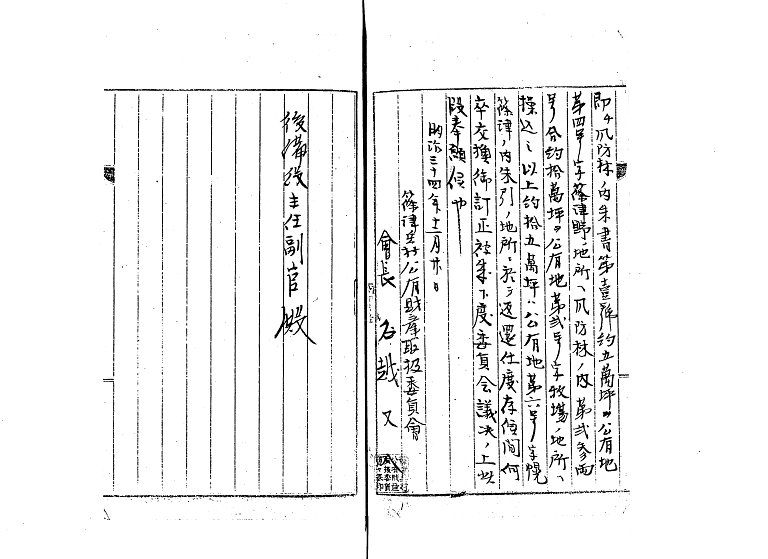 即チ風防林ノ内朱書第壹号約五萬坪ハ公有地
第四号字篠津野ノ地所ヘ風防林ノ内第弐参両
号合約拾萬坪ハ公有地第弐号字牧場ノ地所ヘ
操込ミ以上約拾五萬坪ハ公有地第六号字幌
篠津ノ内朱引ノ地所ニ於テ返還仕度存候間何
卒交換御訂正被成下度委員会議決ノ上此
段奉願候也
明治三十四年十二月廿日
篠津兵村公有財産取扱委員會
會長 石越 又
後備役主任副官殿